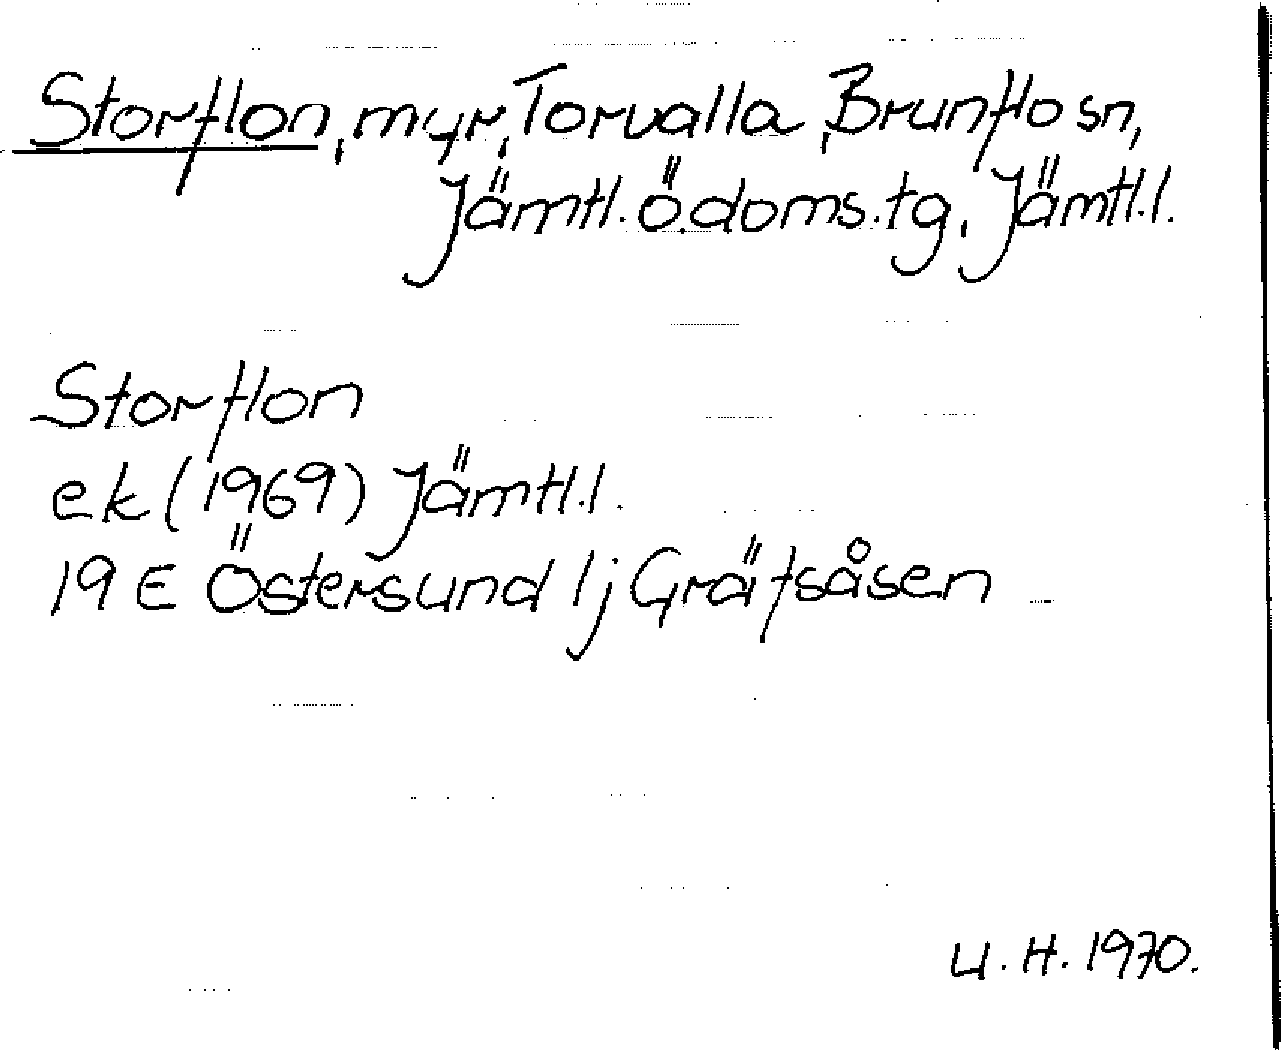 Storflon, myr, Torvalla, Brunflo sn,
Jämtl. ö. doms. tg, Jämtl. l.
Storflon
ek (1969) Jämtl. l.
19 E Östersund 1j Gräfsåsen
U. H. 1970.